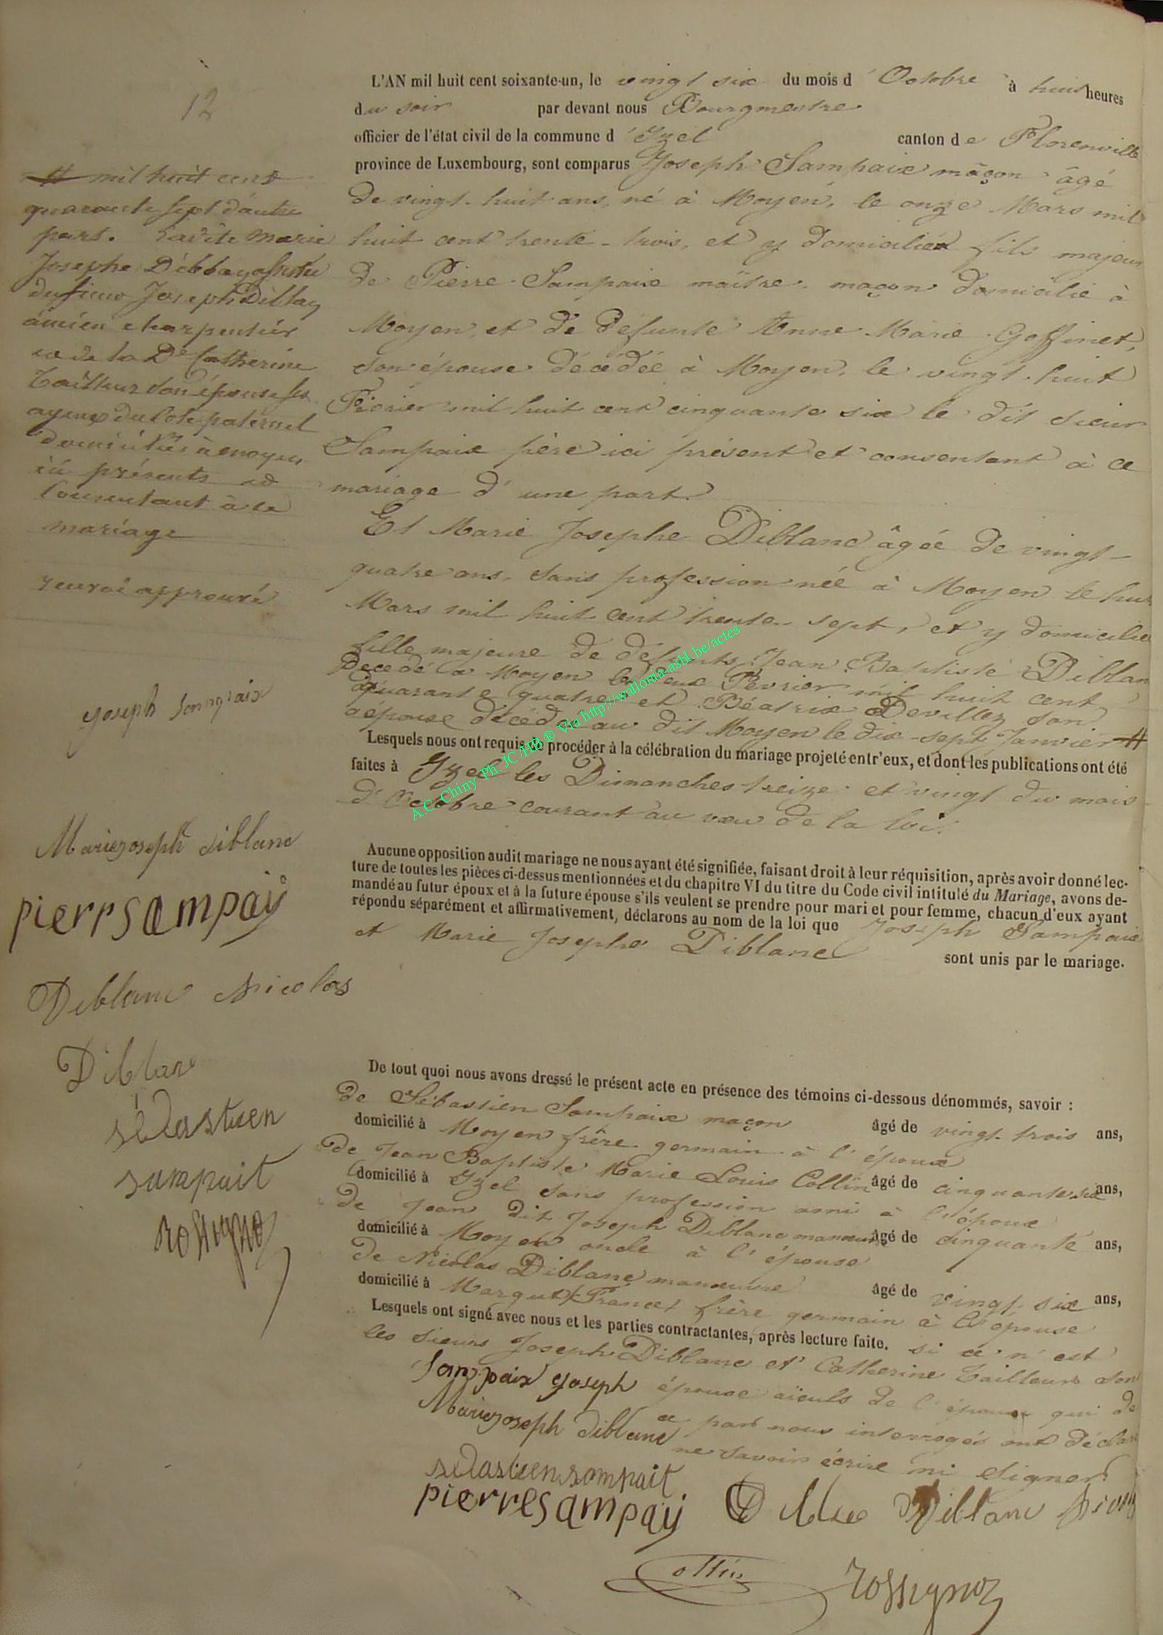 12
L'AN mil huit cent soixante-un, le vingt six du mois d'Octobre à huit heures
du soir par devant nous Bourgmestre
officier de l'état civil de la commune d'Izel canton de Florenville
province de Luxembourg, sont comparus Joseph Sampaix maçon âgé
de vingt-huit ans, né à Moyen, le onze Mars mil
huit cent trente-trois, et y domicilié fils majeur
de Pierre Sampaix maître maçon domicilié à
Moyen, et de défunte Anne Marie Goffinet,
son épouse décédée à Moyen, le vingt-huit
Février mil huit cent cinquante six le dit sieur
Sampaix père ici présent et consentant à ce
mariage d'une part.
Et Marie Josephe Diblanc âgée de vingt-
quatre ans, sans profession née à Moyen le huit
Mars mil huit cent trente-sept, et y domiciliée
fille majeure de défunts Jean Baptiste Diblanc
décédé à Moyen le deux Février mil huit cent
quarante quatre et Béatrix Devillez son
épouse décédée au dit Moyen le dix-sept Janvier #
Lesquels nous ont requis de procéder à la célébration du mariage projeté entr'eux, et dont les publications ont été
faites à Izel les Dimanches treize et vingt du mois
d'Octobre courant au vœu de la loi.
Aucune opposition audit mariage ne nous ayant été signifiée, faisant droit à leur réquisition, après avoir donné lec-
ture de toutes les pièces ci-dessus mentionnées et du chapitre VI du titre du Code civil intitulé du Mariage, avons de-
mandé au futur époux et à la future épouse s'ils veulent se prendre pour mari et pour femme, chacun d'eux ayant
répondu séparément et affirmativement, déclarons au nom de la loi que Joseph Sampaix
et Marie Josephe Diblanc sont unis par le mariage.
De tout quoi nous avons dressé le présent acte en présence des témoins ci-dessous dénommés, savoir :
de Sébastien Sampaix maçon âgé de vingt-trois ans,
domicilié à Moyen frère germain à l'époux
de Jean Baptiste Marie Louis Collin âgé de cinquante six ans,
domicilié à Izel sans profession ami à l'époux
de Jean dit Joseph Diblanc manœuvre âgé de cinquante ans,
domicilié à Moyen oncle à l'épouse
de Nicolas Diblanc manœuvre âgé de vingt six ans,
domicilié à Margut (France) frère germain à l'épouse
Lesquels ont signé avec nous et les parties contractantes, après lecture faite. si ce n'est
les sieurs Joseph Diblanc et Catherine Tailleur son
épouse aïeuls de l'épouse qui de
ce part nous interrogés ont déclaré
ne savoir écrire ni signer.
Sampaix Joseph
Marie joseph diblanc
sebastien sampait
pierre sampaÿ Diblanc
Collin Rossignon
# mil huit cent
quarante sept d'autre
part. Ladite Marie
Josephe Diblanc assistée
du sieur Joseph Diblanc
ancien charpentier
et de la De Catherine
Tailleur son épouse ses
ayeux du côté paternel
domiciliés à moyen
ici présents et
consentant à ce
mariage
renvoi approuvé
joseph sampaix
Marie joseph diblanc
pierre sampaÿ
Diblanc Nicolas
Diblanc
sebastien
sampait
Rossignon
A.C. Chiny Ph JC 186 ® Via http://wallonia-asbl.be/actes